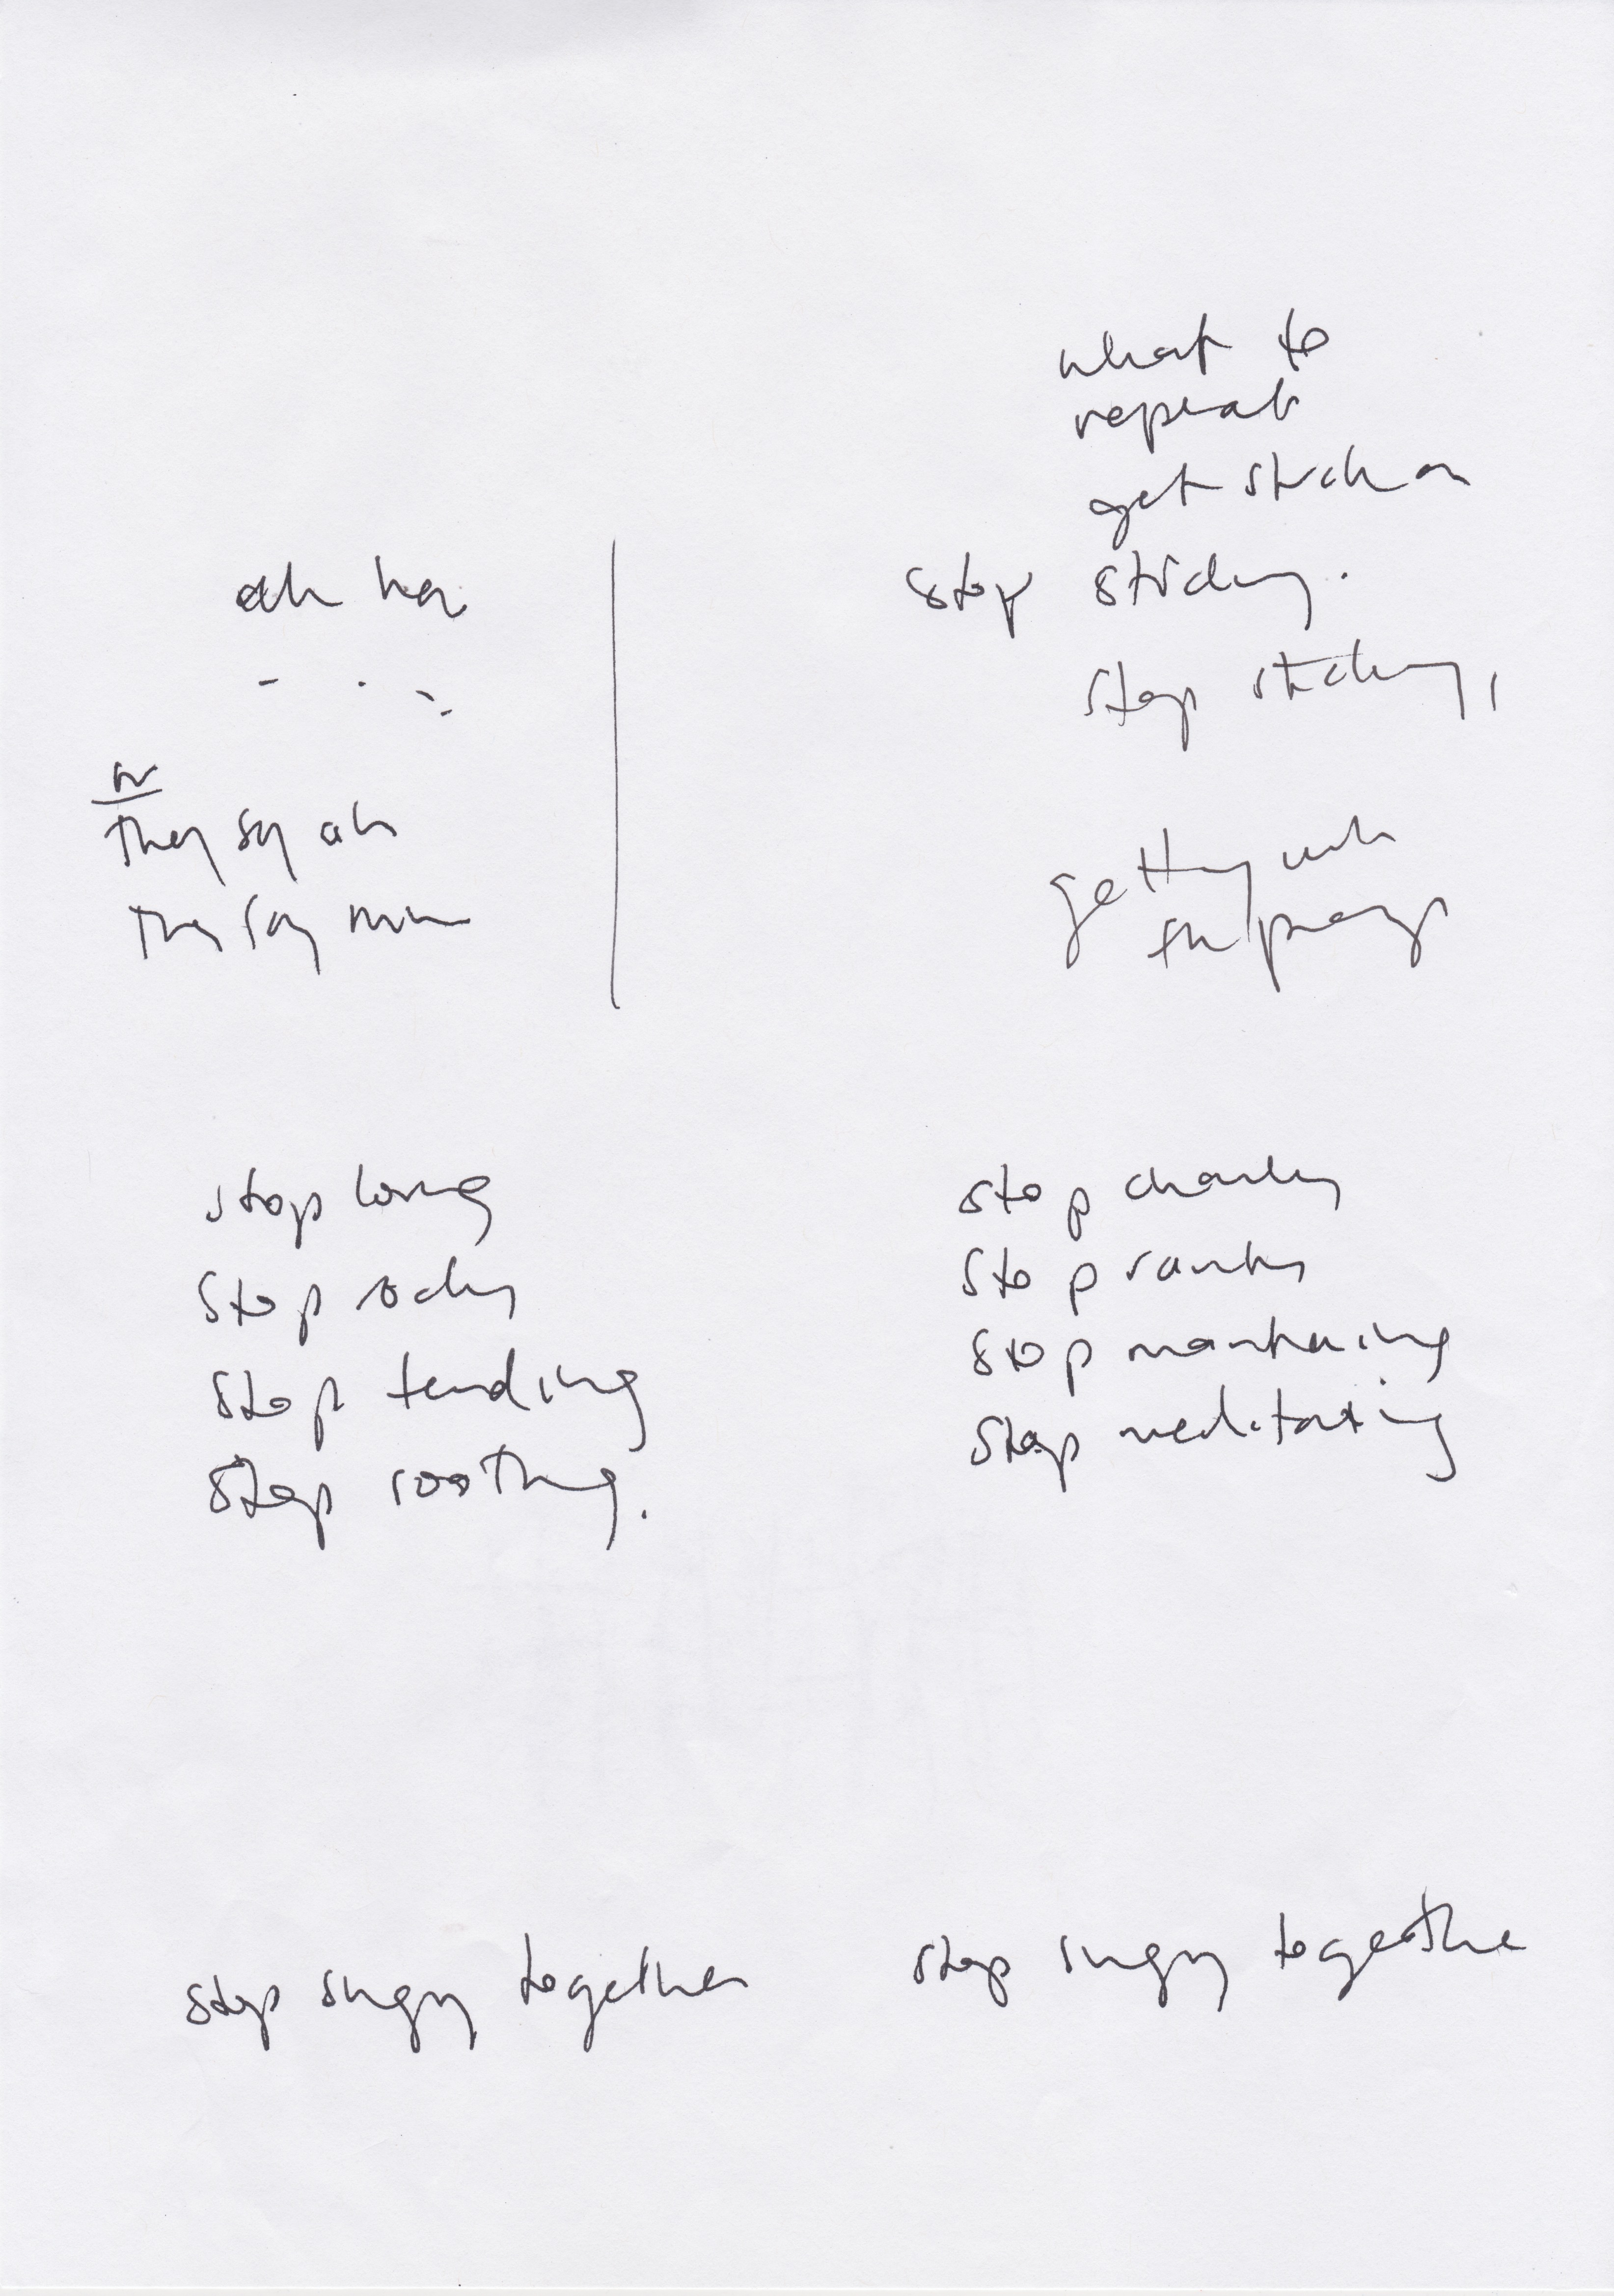 what to
repeat
get stuck on
stop sticking.
stop sticking,
ah ha
they say ah
they say mm
getting with
the
stop loving
stop rocking
stop tending
stop soothing.
stop chanting
stop ranting
stop mantraing
stop meditating
stop singing together
stop singing together